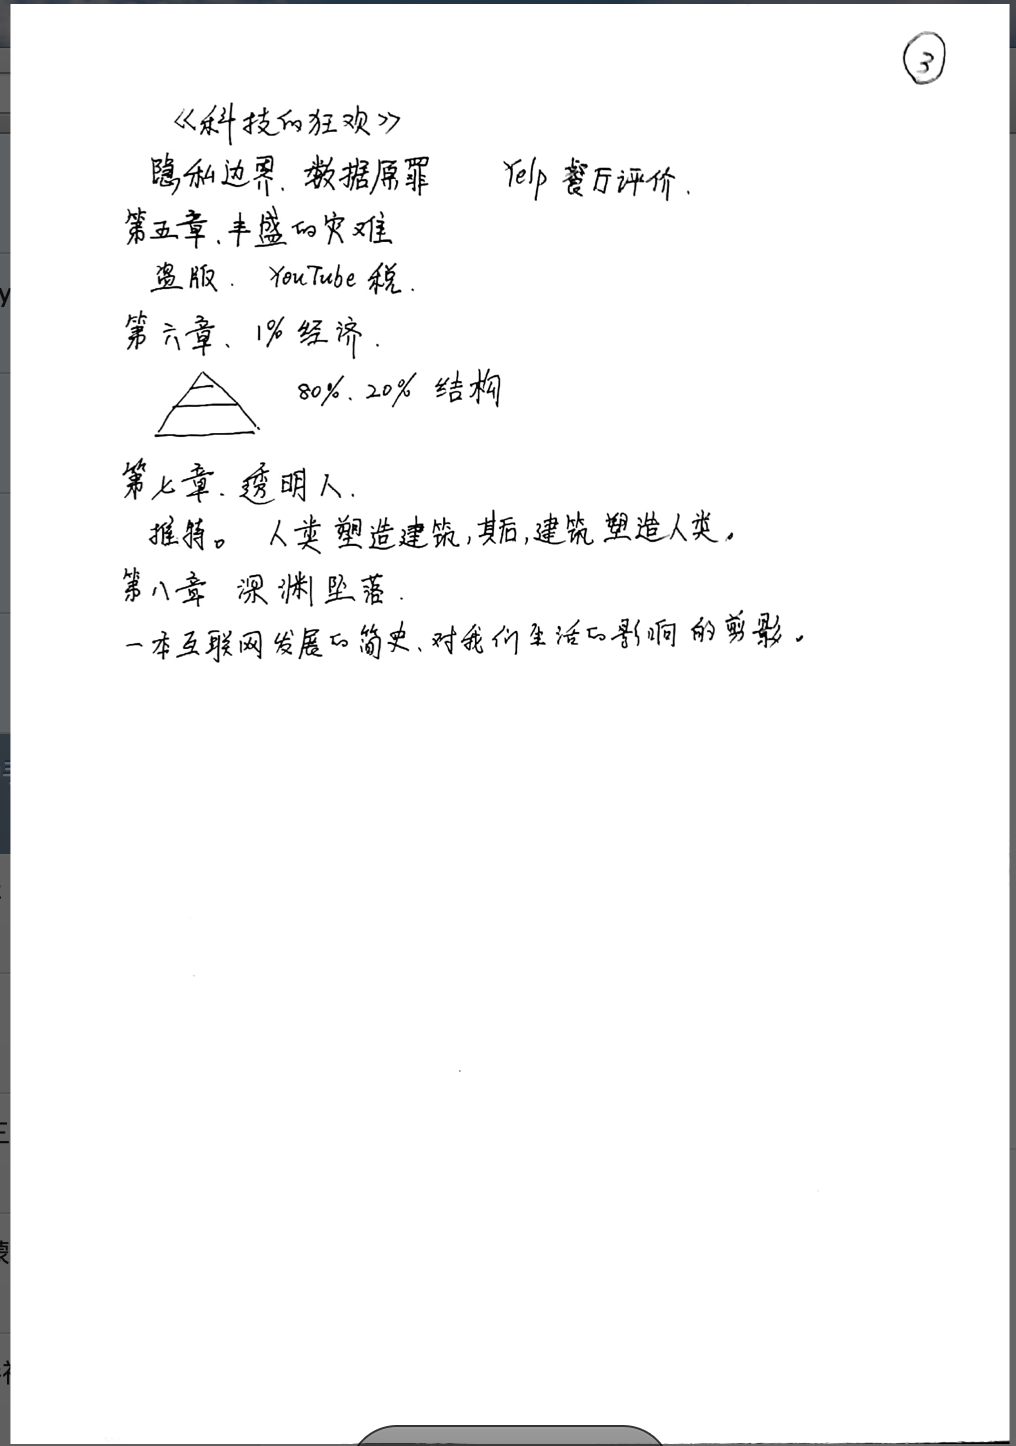 ③
《科技的狂欢》
隐私边界、数据原罪 Yelp 餐厅评价.
第五章、丰盛的灾难
盗版. YouTube 税.
第六章、1% 经济.
80%、20% 结构
第七章、透明人.
推特。 人类塑造建筑,其后,建筑塑造人类。
第八章 深渊坠落.
一本互联网发展的简史、对我们生活的影响的剪影。